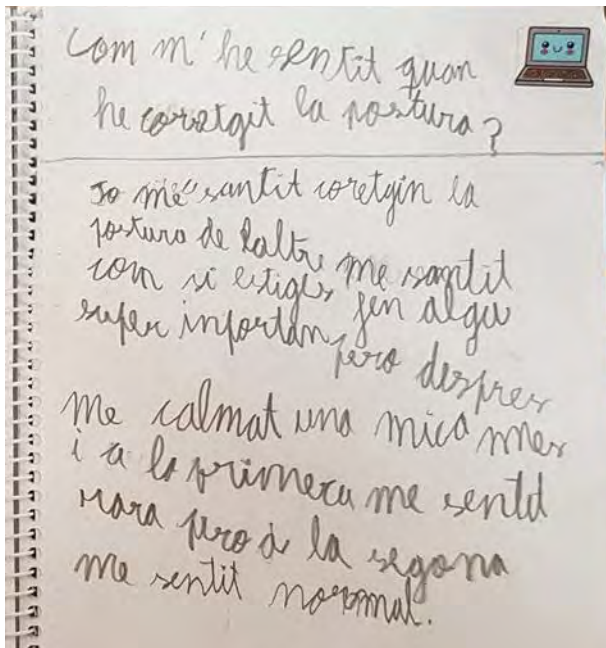 Com m' he sentit quan
he coretgit la postura?
Jo me santit coretgin la
postura de laltre me santit
com si estiges fen algu
super inportan, pero despres
me calmat una mica mes
i a la primera me sentid
rara pero a la segona
me sentit normal.